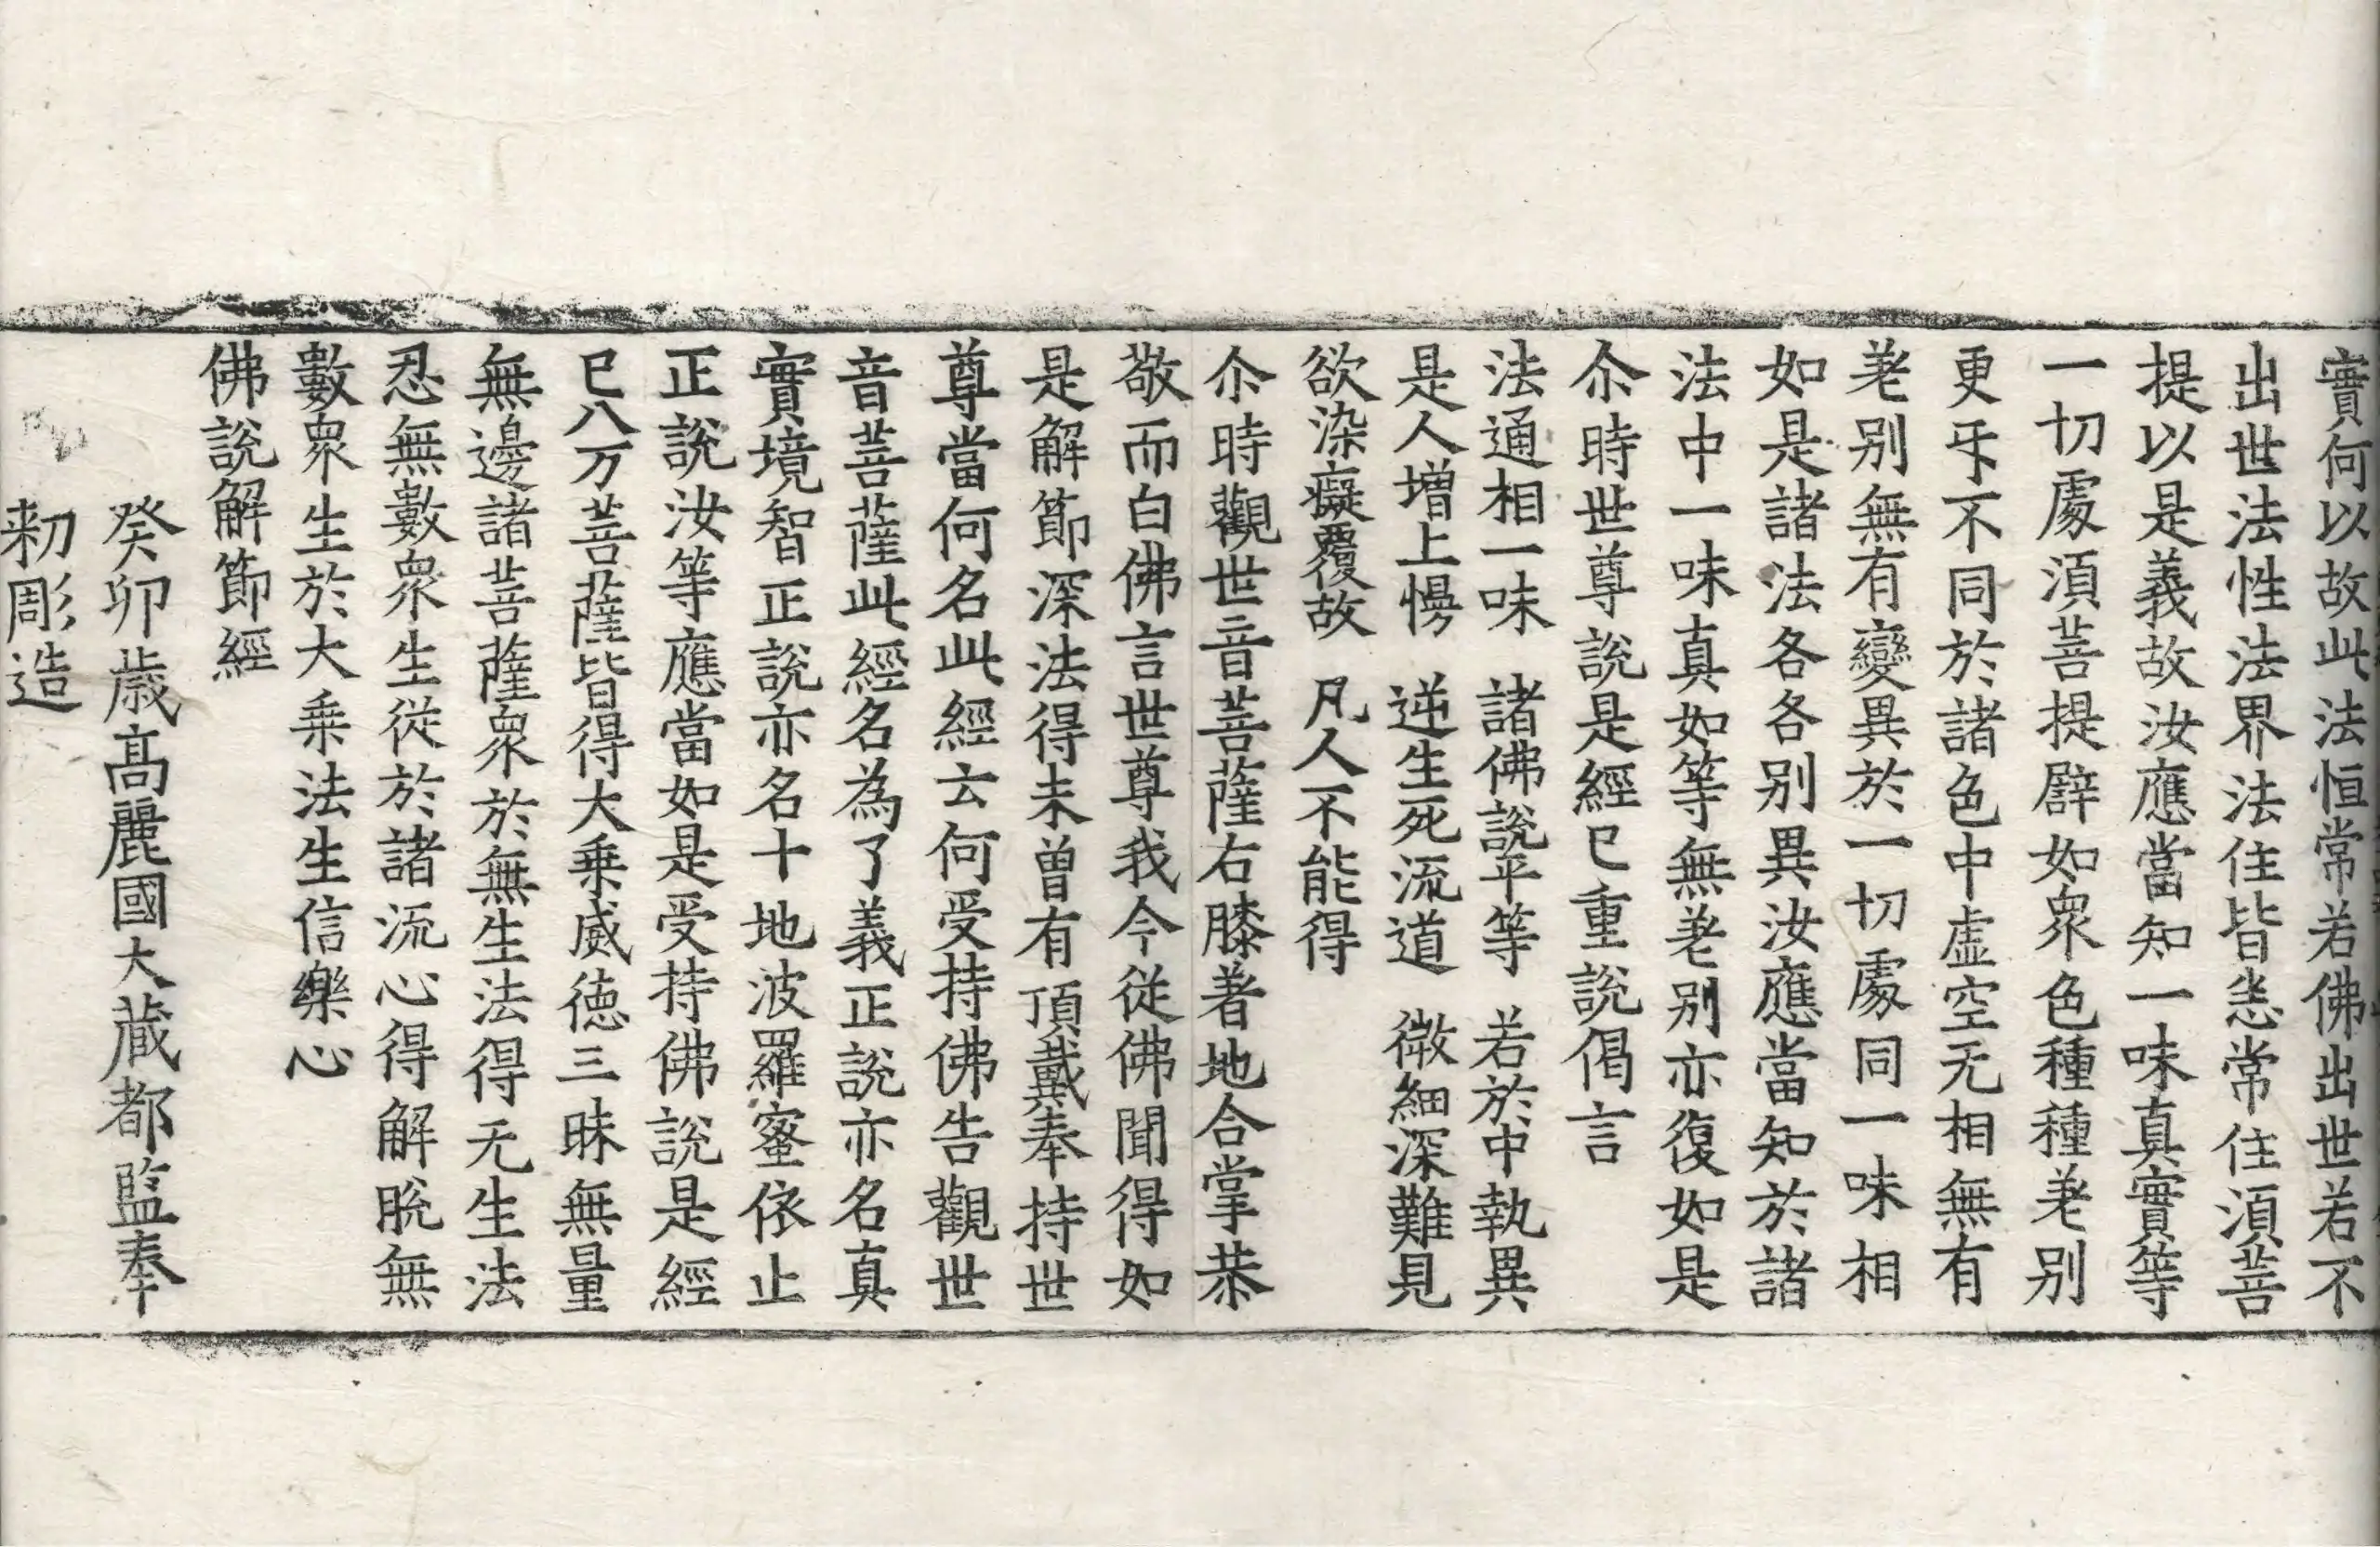 實何以故此法恒常若佛出世若不
出世法性法界法住皆悉常住湏菩
提以是義故汝應當知一味真實等
一切處湏菩提辟如衆色種種差别
更㸦不同於諸色中虛空无相無有
差别無有變異於一切處同一味相
如是諸法各各别異汝應當知於諸
法中一味真如等無差别亦復如是
尒時世尊說是經已重說偈言
法通相一味　諸佛說平等　若於中執異
是人增上慢　逆生死流道　微細深難見
欲染癡覆故　凡人不能得
尒時觀世音菩薩右膝著地合掌恭
敬而白佛言世尊我今從佛聞得如
是解節深法得未曾有頂戴奉持世
尊當何名此經云何受持佛告觀世
音菩薩此經名為了義正說亦名真
實境智正說亦名十地波羅蜜依止
正說汝等應當如是受持佛說是經
已八万菩薩皆得大乗威德三昧無量
無邊諸菩薩衆於無生法得无生法
忍無數衆生從於諸流心得解脫無
數衆生於大乗法生信樂心
佛說解節經
癸卯歳高麗國大藏都監奉
勑彫造